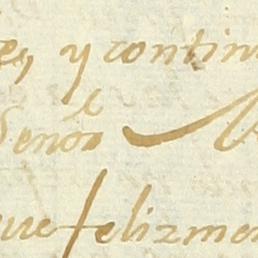 es, y contin
Señor
que felizmen